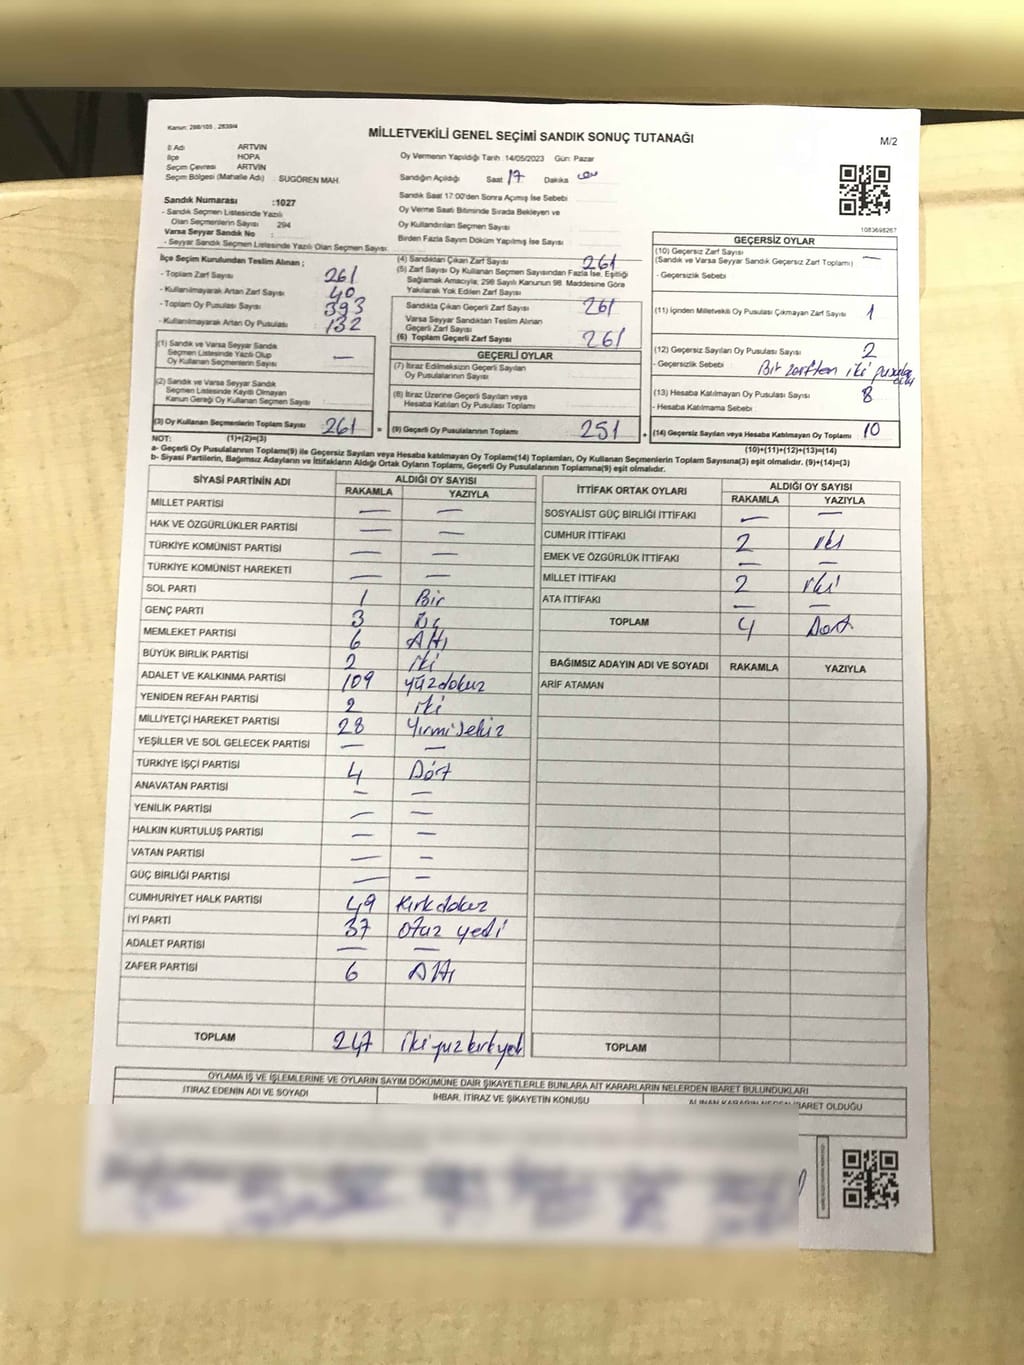 Kanun: 298/105 , 2839/4
MİLLETVEKİLİ GENEL SEÇİMİ SANDIK SONUÇ TUTANAĞI
M/2
İl Adı ARTVİN
İlçe HOPA
Seçim Çevresi ARTVİN
Seçim Bölgesi (Mahalle Adı) : SUGÖREN MAH.
Oy Vermenin Yapıldığı Tarih :14/05/2023 Gün: Pazar
Sandığın Açıldığı Saat 17 Dakika
Sandık Saat 17:00'den Sonra Açılmış İse Sebebi
Oy Verme Saati Bitiminde Sırada Bekleyen ve
Oy Kullandırılan Seçmen Sayısı
Birden Fazla Sayım Döküm Yapılmış İse Sayısı
Sandık Numarası :1027
- Sandık Seçmen Listesinde Yazılı
Olan Seçmenlerin Sayısı 294
Varsa Seyyar Sandık No :
- Seyyar Sandık Seçmen Listesinde Yazılı Olan Seçmen Sayısı:
1083698267
İlçe Seçim Kurulundan Teslim Alınan ;
- Toplam Zarf Sayısı 261
- Kullanılmayarak Artan Zarf Sayısı 40
- Toplam Oy Pusulası Sayısı 393
- Kullanılmayarak Artan Oy Pusulası 132
(1) Sandık ve Varsa Seyyar Sandık
Seçmen Listesinde Yazılı Olup
Oy Kullanan Seçmenlerin Sayısı —
(2) Sandık ve Varsa Seyyar Sandık
Seçmen Listesinde Kayıtlı Olmayan
Kanun Gereği Oy Kullanan Seçmen Sayısı :
(3) Oy Kullanan Seçmenlerin Toplam Sayısı 261
(4) Sandıktan Çıkan Zarf Sayısı 261
(5) Zarf Sayısı Oy Kullanan Seçmen Sayısından Fazla İse, Eşitliği
Sağlamak Amacıyla, 298 Sayılı Kanunun 98. Maddesine Göre
Yakılarak Yok Edilen Zarf Sayısı
Sandıkta Çıkan Geçerli Zarf Sayısı 261
Varsa Seyyar Sandıktan Teslim Alınan
Geçerli Zarf Sayısı
(6) Toplam Geçerli Zarf Sayısı 261
GEÇERLİ OYLAR
(7) İtiraz Edilmeksizin Geçerli Sayılan
Oy Pusulalarının Sayısı
(8) İtiraz Üzerine Geçerli Sayılan veya
Hesaba Katılan Oy Pusulası Toplamı
= (9) Geçerli Oy Pusulalarının Toplamı 251
GEÇERSİZ OYLAR
(10) Geçersiz Zarf Sayısı
(Sandık ve Varsa Seyyar Sandık Geçersiz Zarf Toplamı) —
- Geçersizlik Sebebi
(11) İçinden Milletvekili Oy Pusulası Çıkmayan Zarf Sayısı 1
(12) Geçersiz Sayılan Oy Pusulası Sayısı 2
- Geçersizlik Sebebi Bir zarftan iki pusula
(13) Hesaba Katılmayan Oy Pusulası Sayısı 8
- Hesaba Katılmama Sebebi
+ (14) Geçersiz Sayılan veya Hesaba Katılmayan Oy Toplamı 10
NOT: (1)+(2)=(3) (10)+(11)+(12)+(13)=(14)
a- Geçerli Oy Pusulalarının Toplamı(9) ile Geçersiz Sayılan veya Hesaba katılmayan Oy Toplamı(14) Toplamları, Oy Kullanan Seçmenlerin Toplam Sayısına(3) eşit olmalıdır. (9)+(14)=(3)
b- Siyasi Partilerin, Bağımsız Adayların ve İttifakların Aldığı Ortak Oyların Toplamı, Geçerli Oy Pusulalarının Toplamına(9) eşit olmalıdır.
SİYASİ PARTİNİN ADI ALDIĞI OY SAYISI
RAKAMLA YAZIYLA
MİLLET PARTİSİ — —
HAK VE ÖZGÜRLÜKLER PARTİSİ — —
TÜRKİYE KOMÜNİST PARTİSİ — —
TÜRKİYE KOMÜNİST HAREKETİ — —
SOL PARTİ 1 Bir
GENÇ PARTİ 3 Üç
MEMLEKET PARTİSİ 6 Altı
BÜYÜK BİRLİK PARTİSİ 2 iki
ADALET VE KALKINMA PARTİSİ 109 yüzdokuz
YENİDEN REFAH PARTİSİ 2 iki
MİLLİYETÇİ HAREKET PARTİSİ 28 Yirmisekiz
YEŞİLLER VE SOL GELECEK PARTİSİ — —
TÜRKİYE İŞÇİ PARTİSİ 4 Dört
ANAVATAN PARTİSİ — —
YENİLİK PARTİSİ — —
HALKIN KURTULUŞ PARTİSİ — —
VATAN PARTİSİ — —
GÜÇ BİRLİĞİ PARTİSİ — —
CUMHURİYET HALK PARTİSİ 49 Kırkdokuz
İYİ PARTİ 37 Otuz yedi
ADALET PARTİSİ — —
ZAFER PARTİSİ 6 Altı
TOPLAM 247 ikiyüzkırkyedi
İTTİFAK ORTAK OYLARI ALDIĞI OY SAYISI
RAKAMLA YAZIYLA
SOSYALİST GÜÇ BİRLİĞİ İTTİFAKI — —
CUMHUR İTTİFAKI 2 iki
EMEK VE ÖZGÜRLÜK İTTİFAKI — —
MİLLET İTTİFAKI 2 iki
ATA İTTİFAKI — —
TOPLAM 4 Dört
BAĞIMSIZ ADAYIN ADI VE SOYADI RAKAMLA YAZIYLA
ARİF ATAMAN
TOPLAM
OYLAMA İŞ VE İŞLEMLERİNE VE OYLARIN SAYIM DÖKÜMÜNE DAİR ŞİKAYETLERLE BUNLARA AİT KARARLARIN NELERDEN İBARET BULUNDUKLARI
İTİRAZ EDENİN ADI VE SOYADI İHBAR, İTİRAZ VE ŞİKAYETİN KONUSU ALINAN KARARIN NEDEN İBARET OLDUĞU